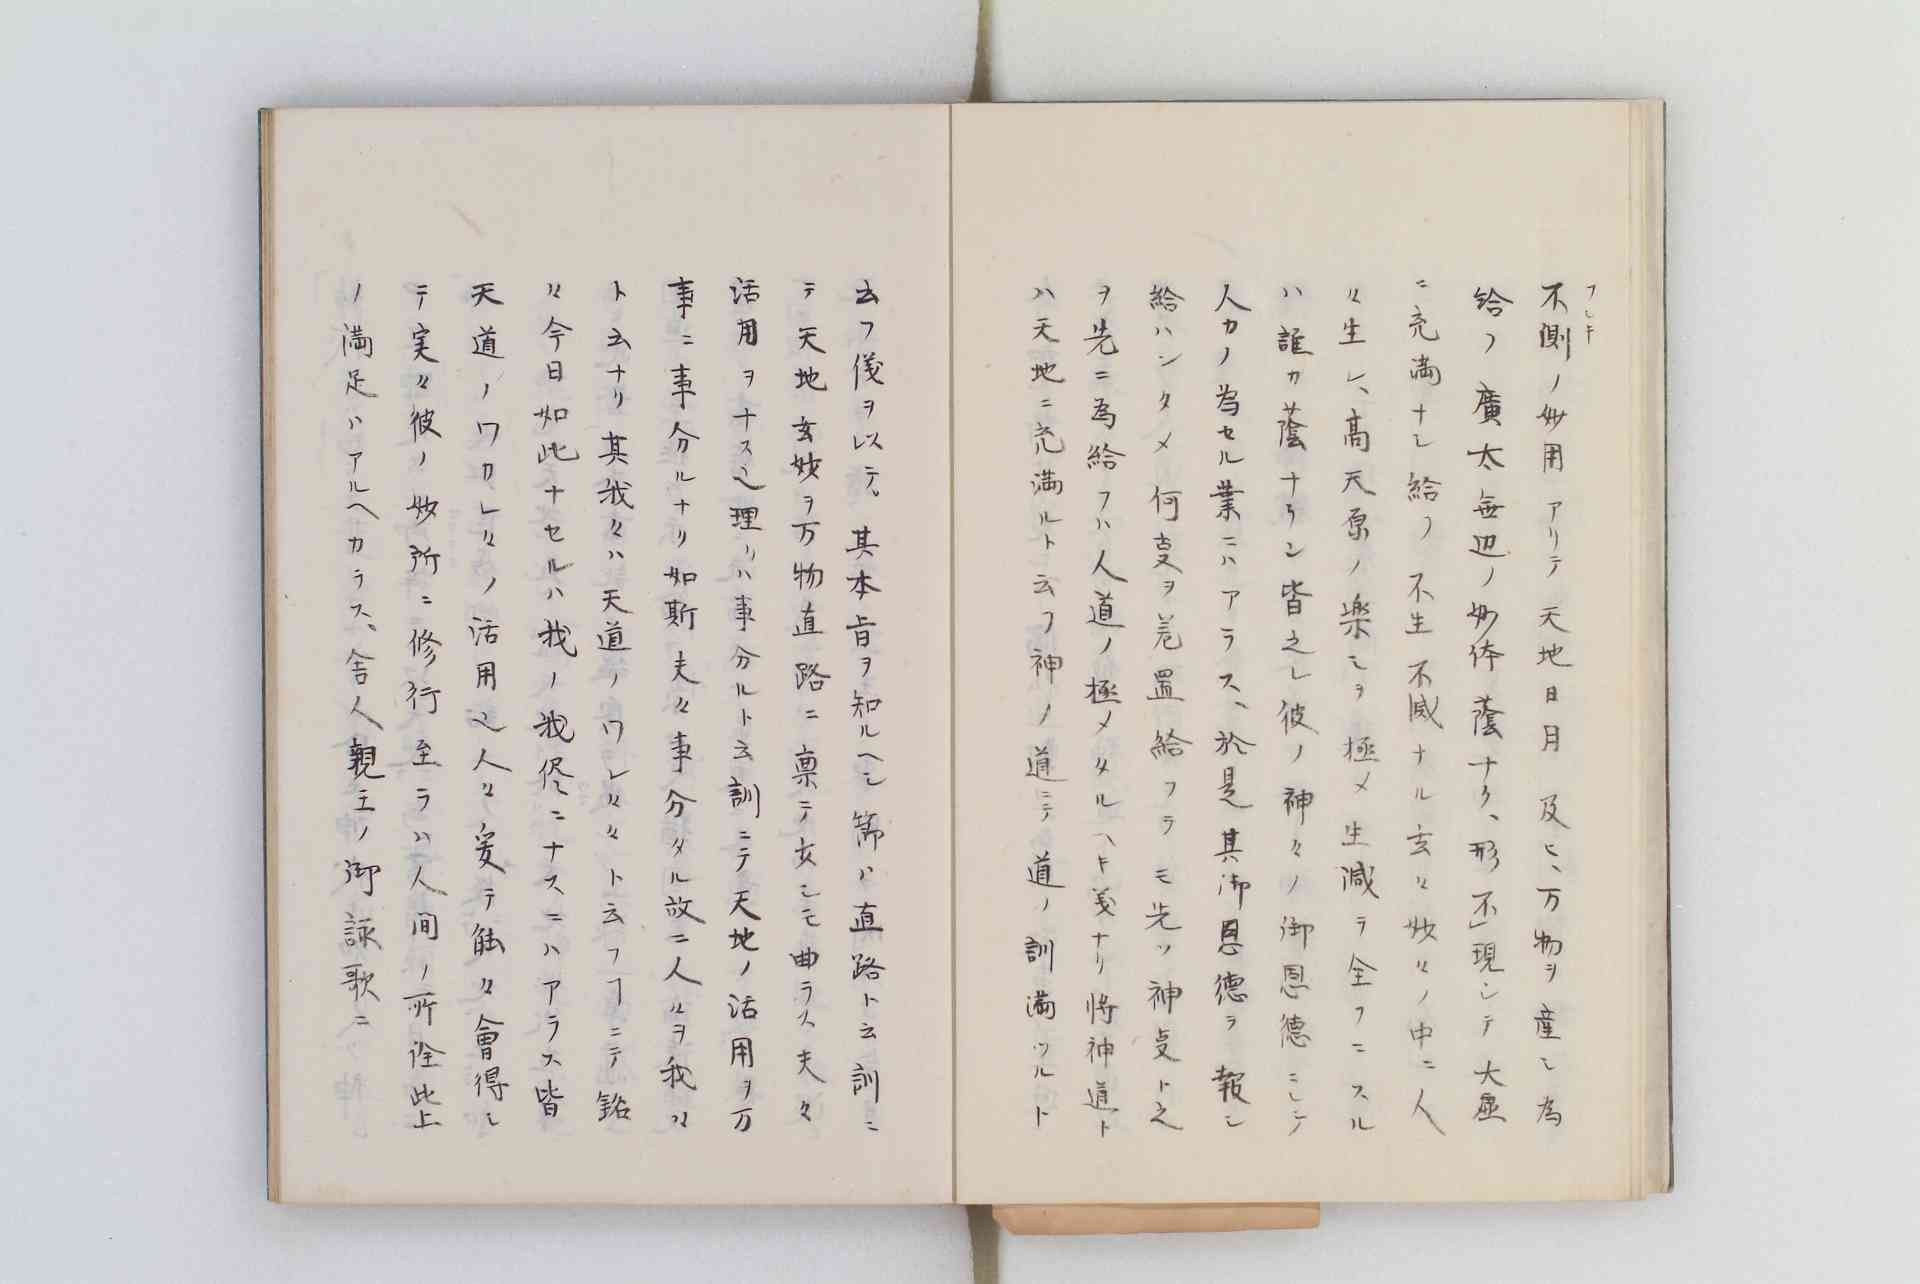 フシキ
不側ノ妙用アリテ天地日月及ヒ、万物ヲ産シ為
給フ廣太無辺ノ妙体蔭ナク、形不」現シテ大虚
ニ充満ナシ給フ不生不滅ナル玄々妙々ノ中ニ人
々生レ、高天原ノ楽シヲ極メ生滅ヲ全フニスル
ハ誰カ蔭ナラン皆之レ彼ノ神々ノ御恩徳ニシテ
人力ノ為セル業ニハアラス、於是其御恩徳ヲ報シ
給ハンタメ何支ヲ差置給フラモ先ツ神支ト之
ヲ先ニ為給フハ人道ノ極メタルヘキ義ナリ将神道ト
ハ天地ニ充満ルト云フ神ノ道ニテ道ノ訓満ツルト
云フ儀ヲ以テ。其本旨ヲ知ルヘシ節ハ直路ト云訓ニ
テ天地玄妙ヲ万物直路ニ禀テ亥シモ曲ラス夫々
活用ヲナス之理リハ事分ルト云訓ニテ天地ノ活用ヲ万
事ニ事分ルナリ如斯夫々事分タル故ニ人々ヲ我々
ト云ナリ其我々ハ天道ノワレ々々ト云フヿニテ銘
々今日如此ナセルハ我ノ我侭ニナスニハアラス皆
天道ノワカレ々ノ活用之人々爰テ能々會得シ
テ実々彼ノ妙所ニ修行至ラハ人間ノ所詮此上
ノ満足ハアルヘカラス、舎人親王ノ御詠歌ニ